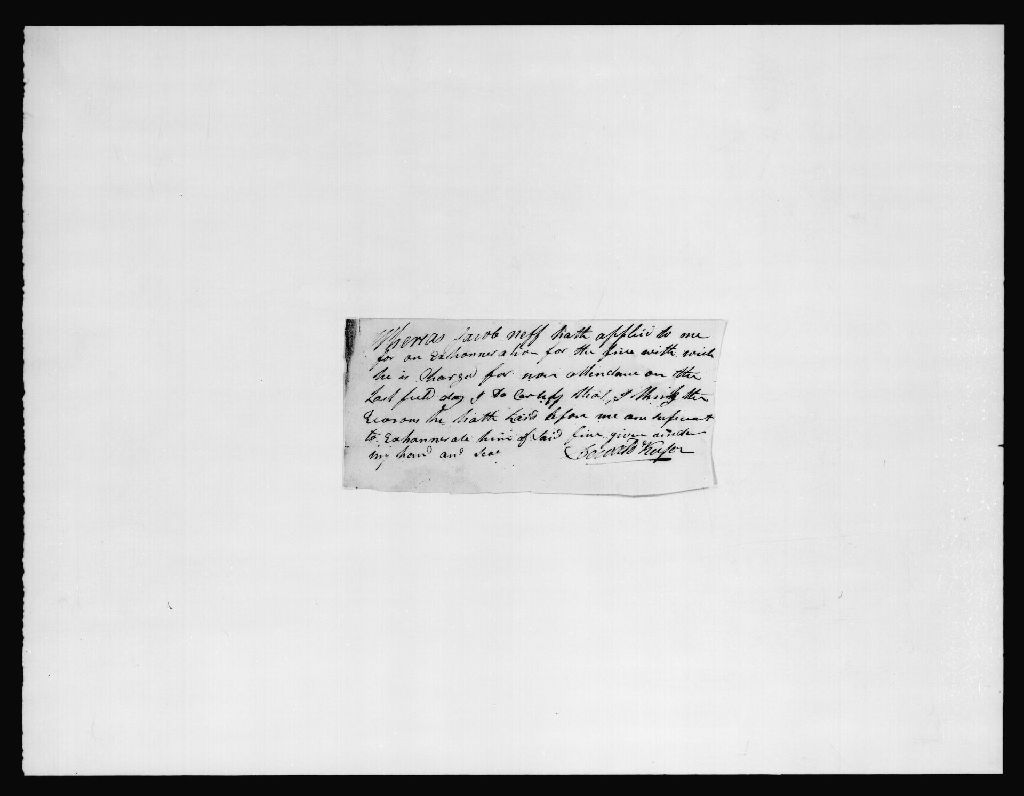 Whereas Jacob Neff hath applied to me
for an Exhonneration for the fine with wich
he is Charged for non attendance on the
Last field day I do Certify that I think the
Reasons he hath Laid before me are suficent
to Exhonnerate him of Said fine given under
my hand and Seal